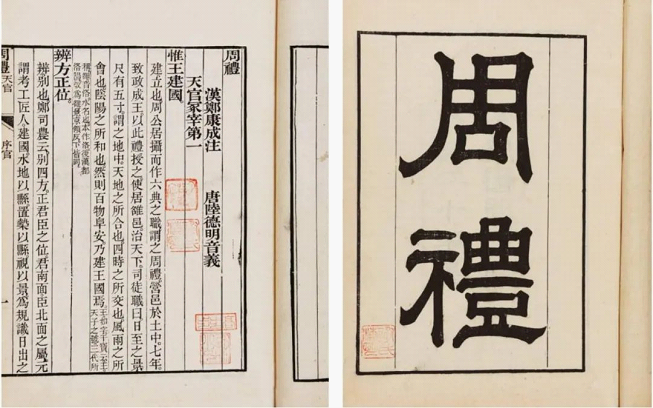 周禮
周禮
漢鄭康成注 唐陸德明音義
天官冢宰第一
惟王建國
建立也周公居攝而作六典之職謂之周禮營邑於土中七年
致政成王以此禮授之使居雒邑治天下司徒職曰日至之景
尺有五寸謂之地中天地之所合也四時之所交也風雨之所
會也陰陽之所和也然則百物阜安乃建王國焉
辨方正位
辨別也鄭司農云別四方正君臣之位君南面臣北面之屬元
謂考工匠人建國水地以縣置槷以縣視以景爲規識日出之
周禮 天官 序官 一